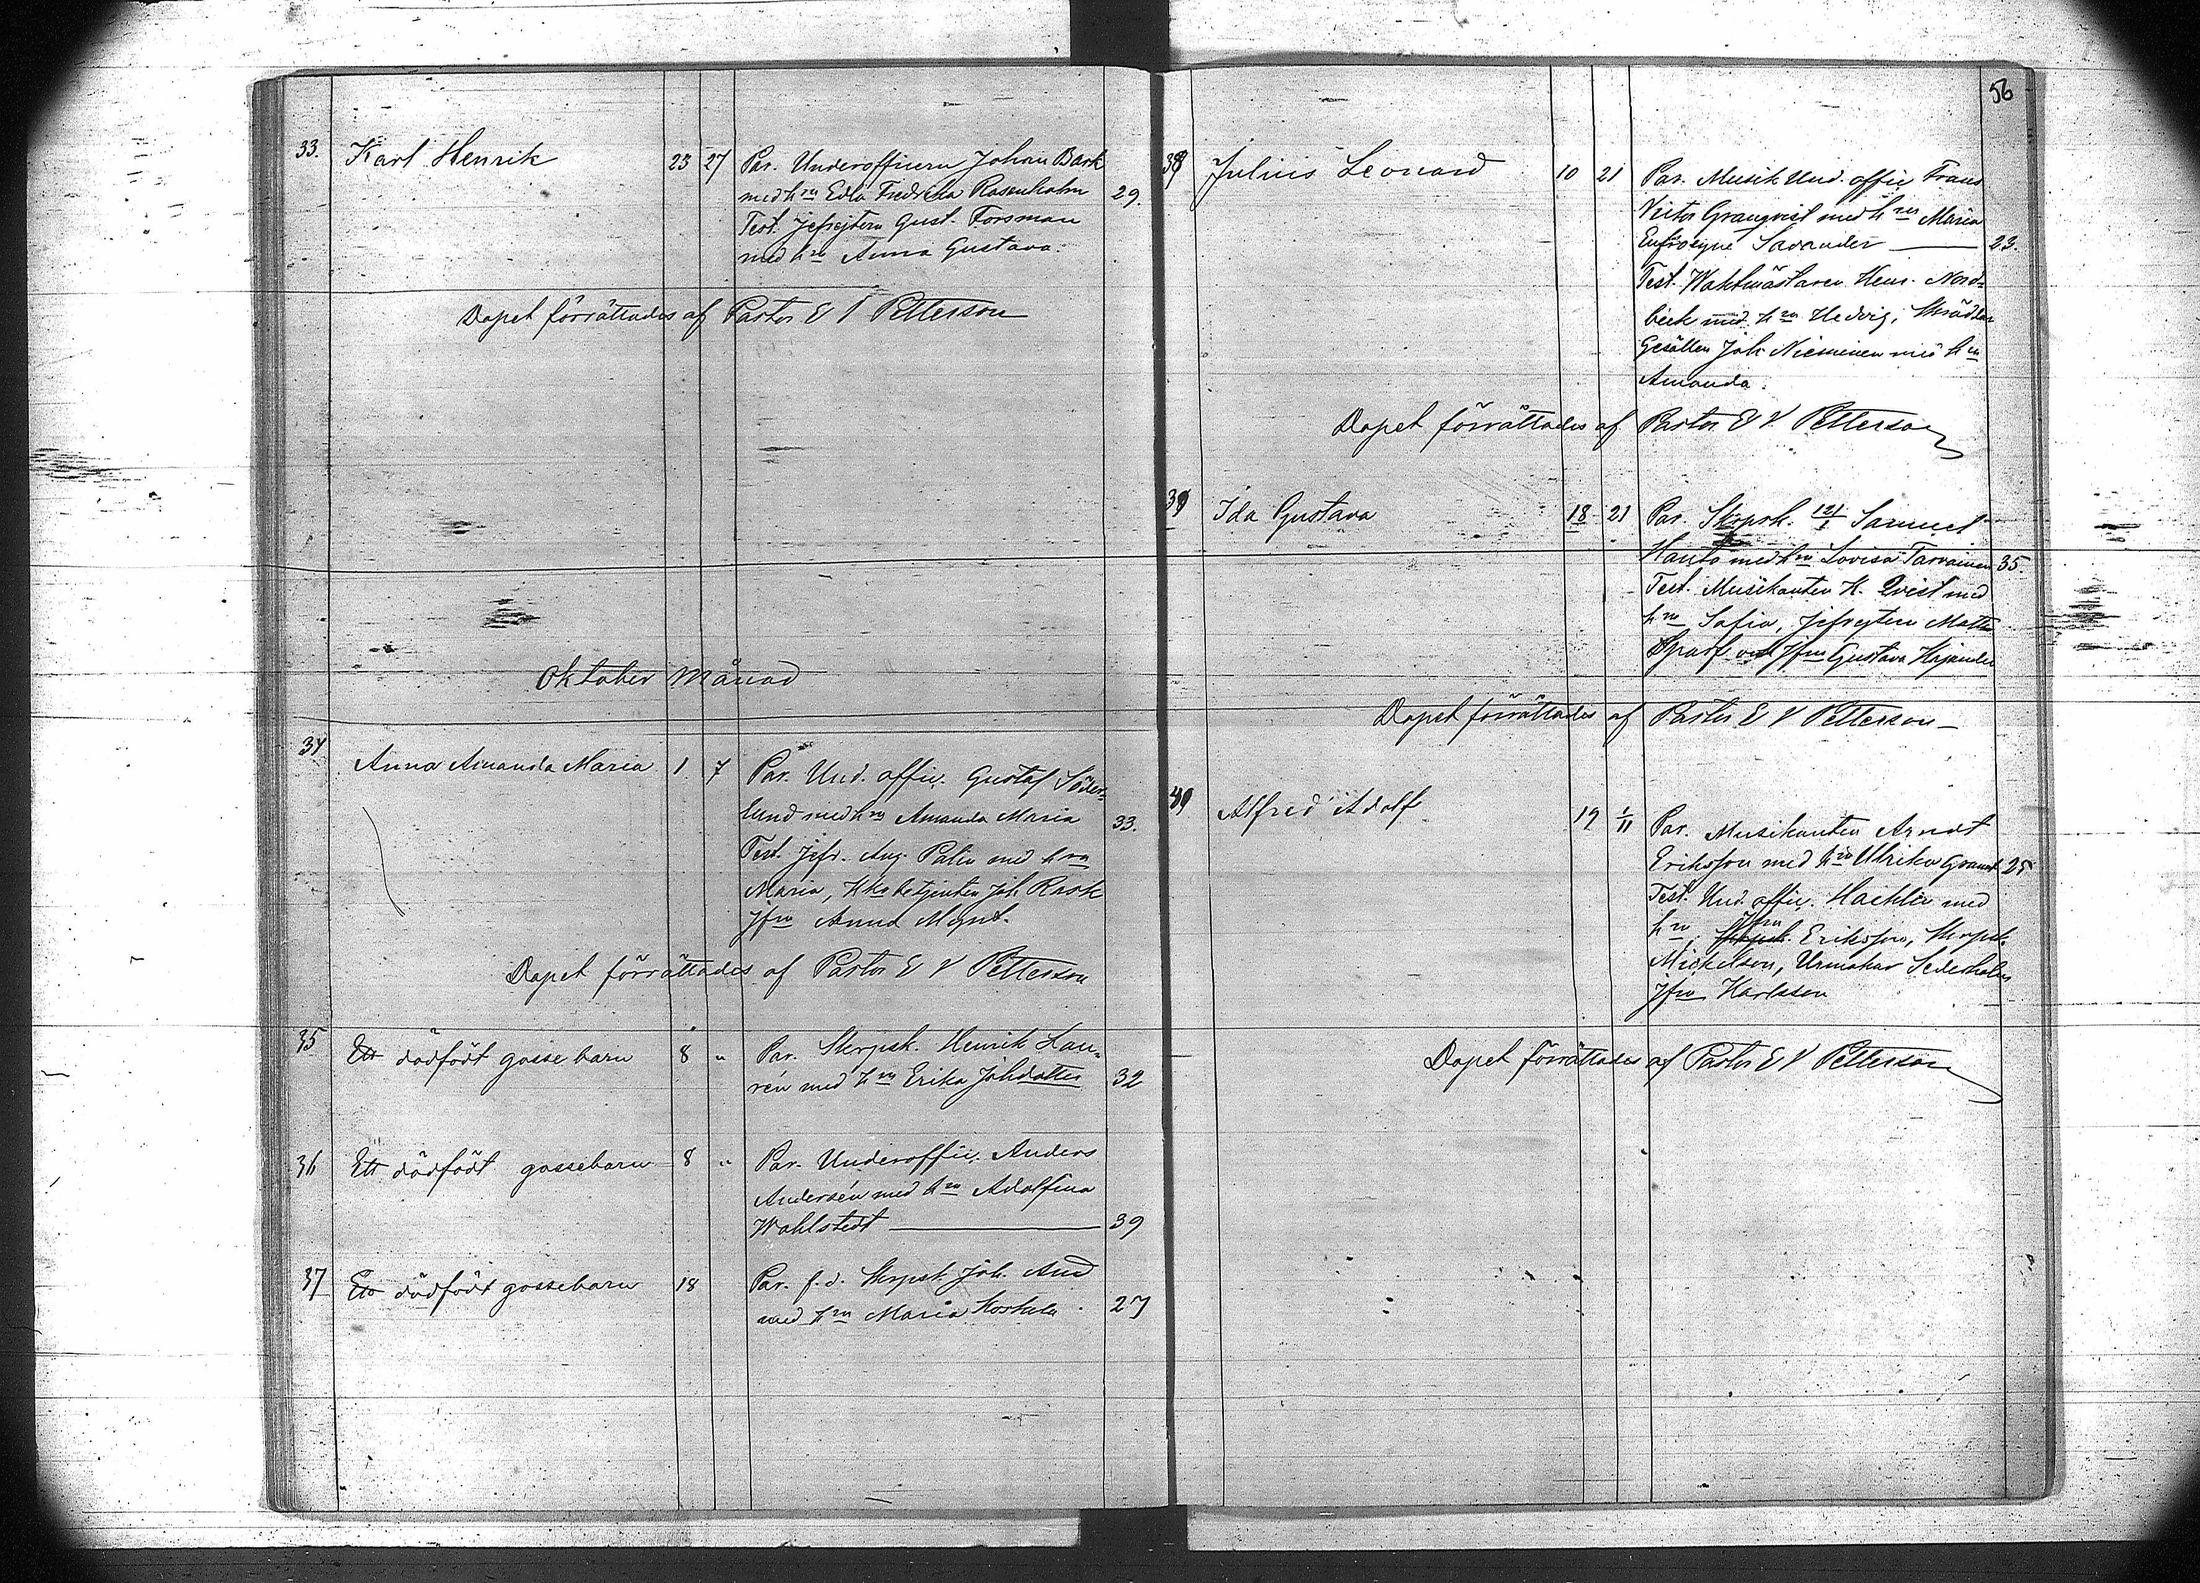 33. Karl Henrik 23 27 Par. Underofficern Johan Back
med hru Edla Fredrika Rosenholm 29.
Test. Jefrejtern Gust. Forsman
med hru Anna Gustava.
Dopet förrättades af Pastor E V Petterson
Oktober Månad
34 Anna Amanda Maria 1. 7 Par. Und. offic. Gustaf Söder-
lund med hru Amanda Maria 33.
Test. Jefr. Aug. Palin med hru
Maria, Joh. Rask
Jfru Anna
Dopet förrättades af Pastor E V Petterson
35 Ett dödfödt gosse barn 8 " Par. Skrpsk. Henrik Lau-
rén med hru Erika Johdotter 32
36 Ett dödfödt gossebarn 8 " Par. Underoffic. Anders
Andersén med hru Adolfina
Wahlstedt 39
37 Ett dödfödt gossebarn 18 Par. f. d. Skrpsk. Joh. And
med hru Maria Koskela. 27
56
38 Julius Leonard 10 21 Par. Musik Und. offic Frans
Victor Granqvist med hru Maria
Eufrosyne Savander 23.
Test. Waktmästaren Henr. Nord-
beck med hru Hedvig, Skräddar
Gesällen Joh. Nieminen med hru
Amanda.
Dopet förrättades af Pastor E V Petterson
39 Ida Gustava 18 21 Par. Skrpsk. 121/1 Samuel
Hauto med hru Lovisa Tarvainen 35.
Test. Musikanten K. Qvist med
hru Sofia, Jefrejtern Matts
Sparf och Jfru Gustava
Dopet förrättades af Pastor E V Petterson
40 Alfred Adolf 19 1/11 Par. Musikanten Arndt
Eriksson med hru Ulrika 25
Test. Und. offic. Hachlin med
hru, Jfru Eriksson, Skrpsk.
Mickelson, Urmakar Sederholm
Jfru Karlsson
Dopet förrättades af Pastor E V Petterson